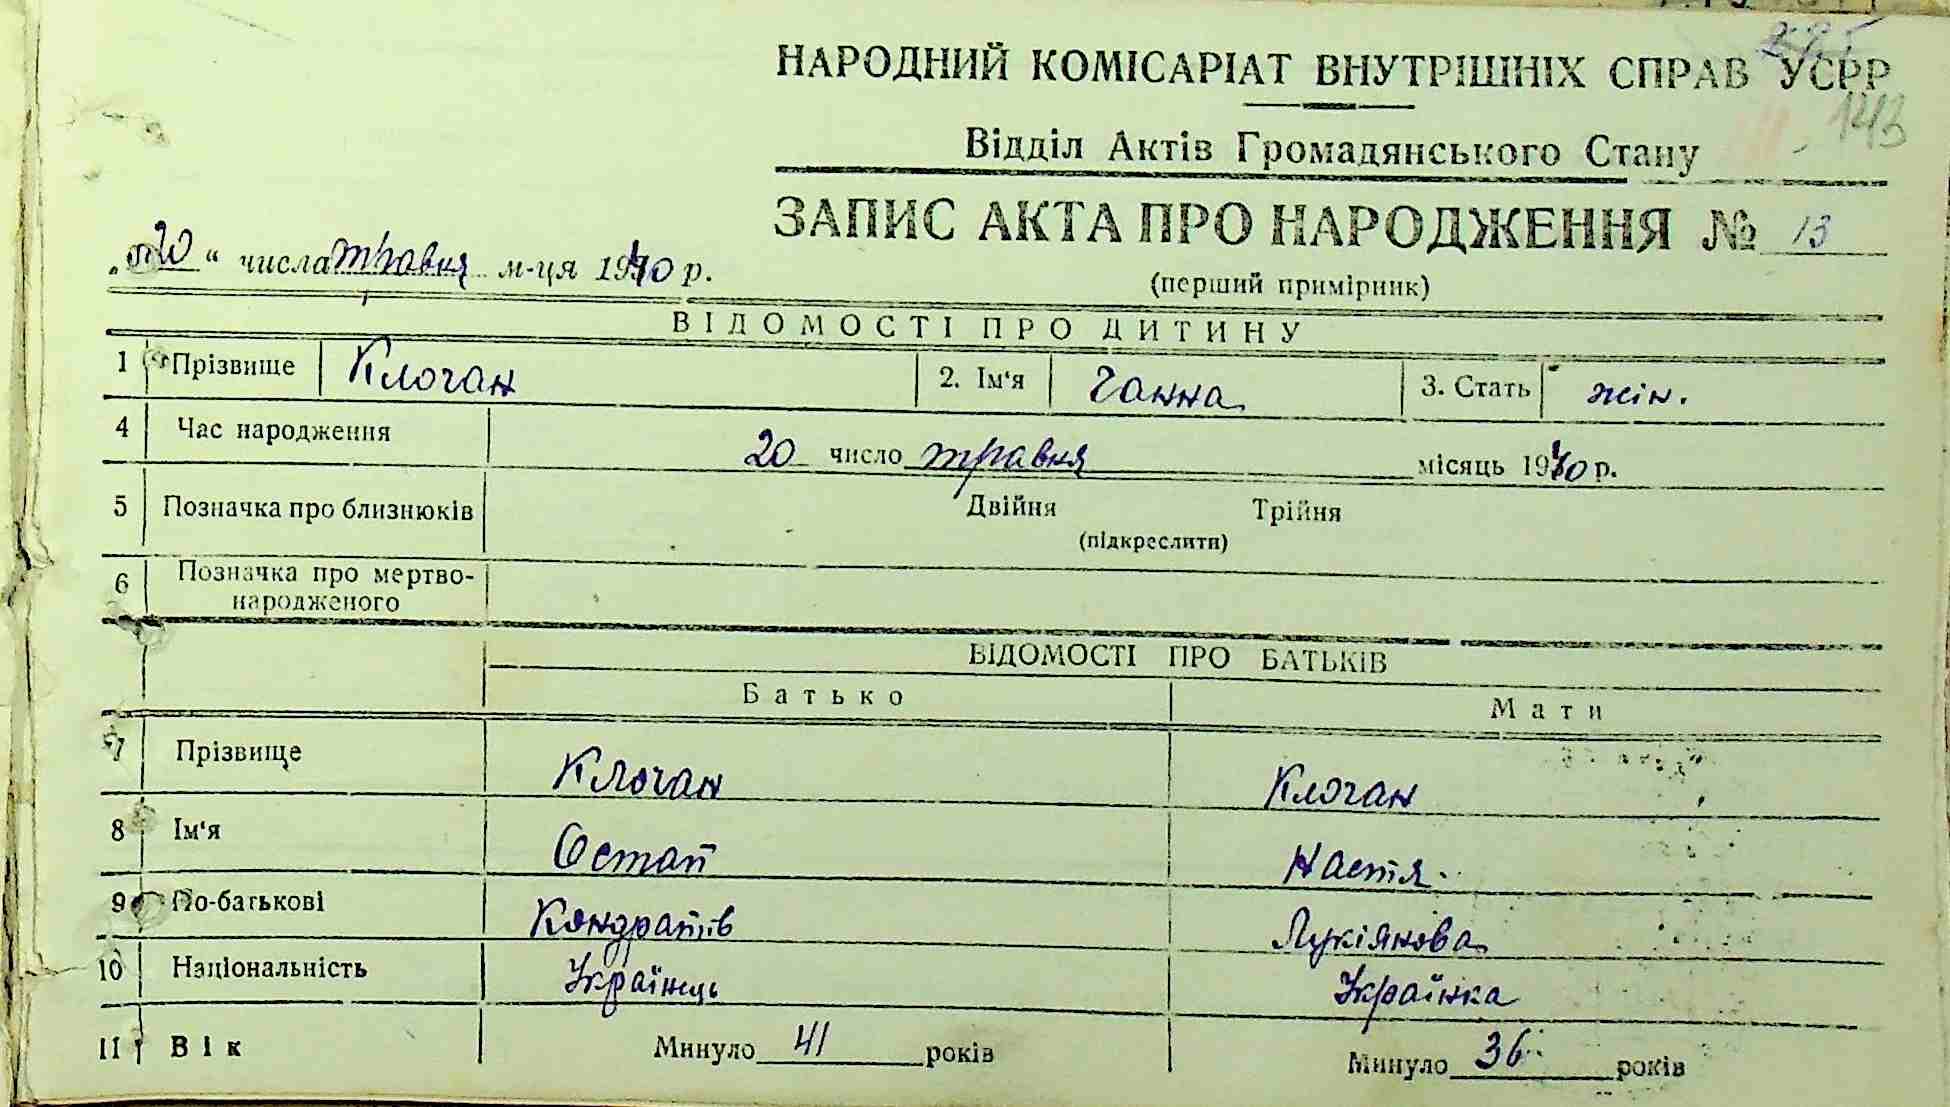 НАРОДНИЙ КОМІСАРІАТ ВНУТРІШНІХ СПРАВ УСРР
143
Відділ Актів Громадянського Стану
ЗАПИС АКТА ПРО НАРОДЖЕННЯ № 13
„20“ числа травня м-ця 1940 р.
(перший примірник)
ВІДОМОСТІ ПРО ДИТИНУ
1 Прізвище Клоган 2. Ім'я Ганна 3. Стать жін.
4 Час народження 20 число травня місяць 1940 р.
5 Позначка про близнюків Двійня Трійня
(підкреслити)
6 Позначка про мертво-
народженого
ВІДОМОСТІ ПРО БАТЬКІВ
Батько Мати
7 Прізвище Клоган Клоган
8 Ім'я Остап Настя
9 По-батькові Кондратів Лукіянова
10 Національність Українець Українка
11 Вік Минуло 41 років Минуло 36 років